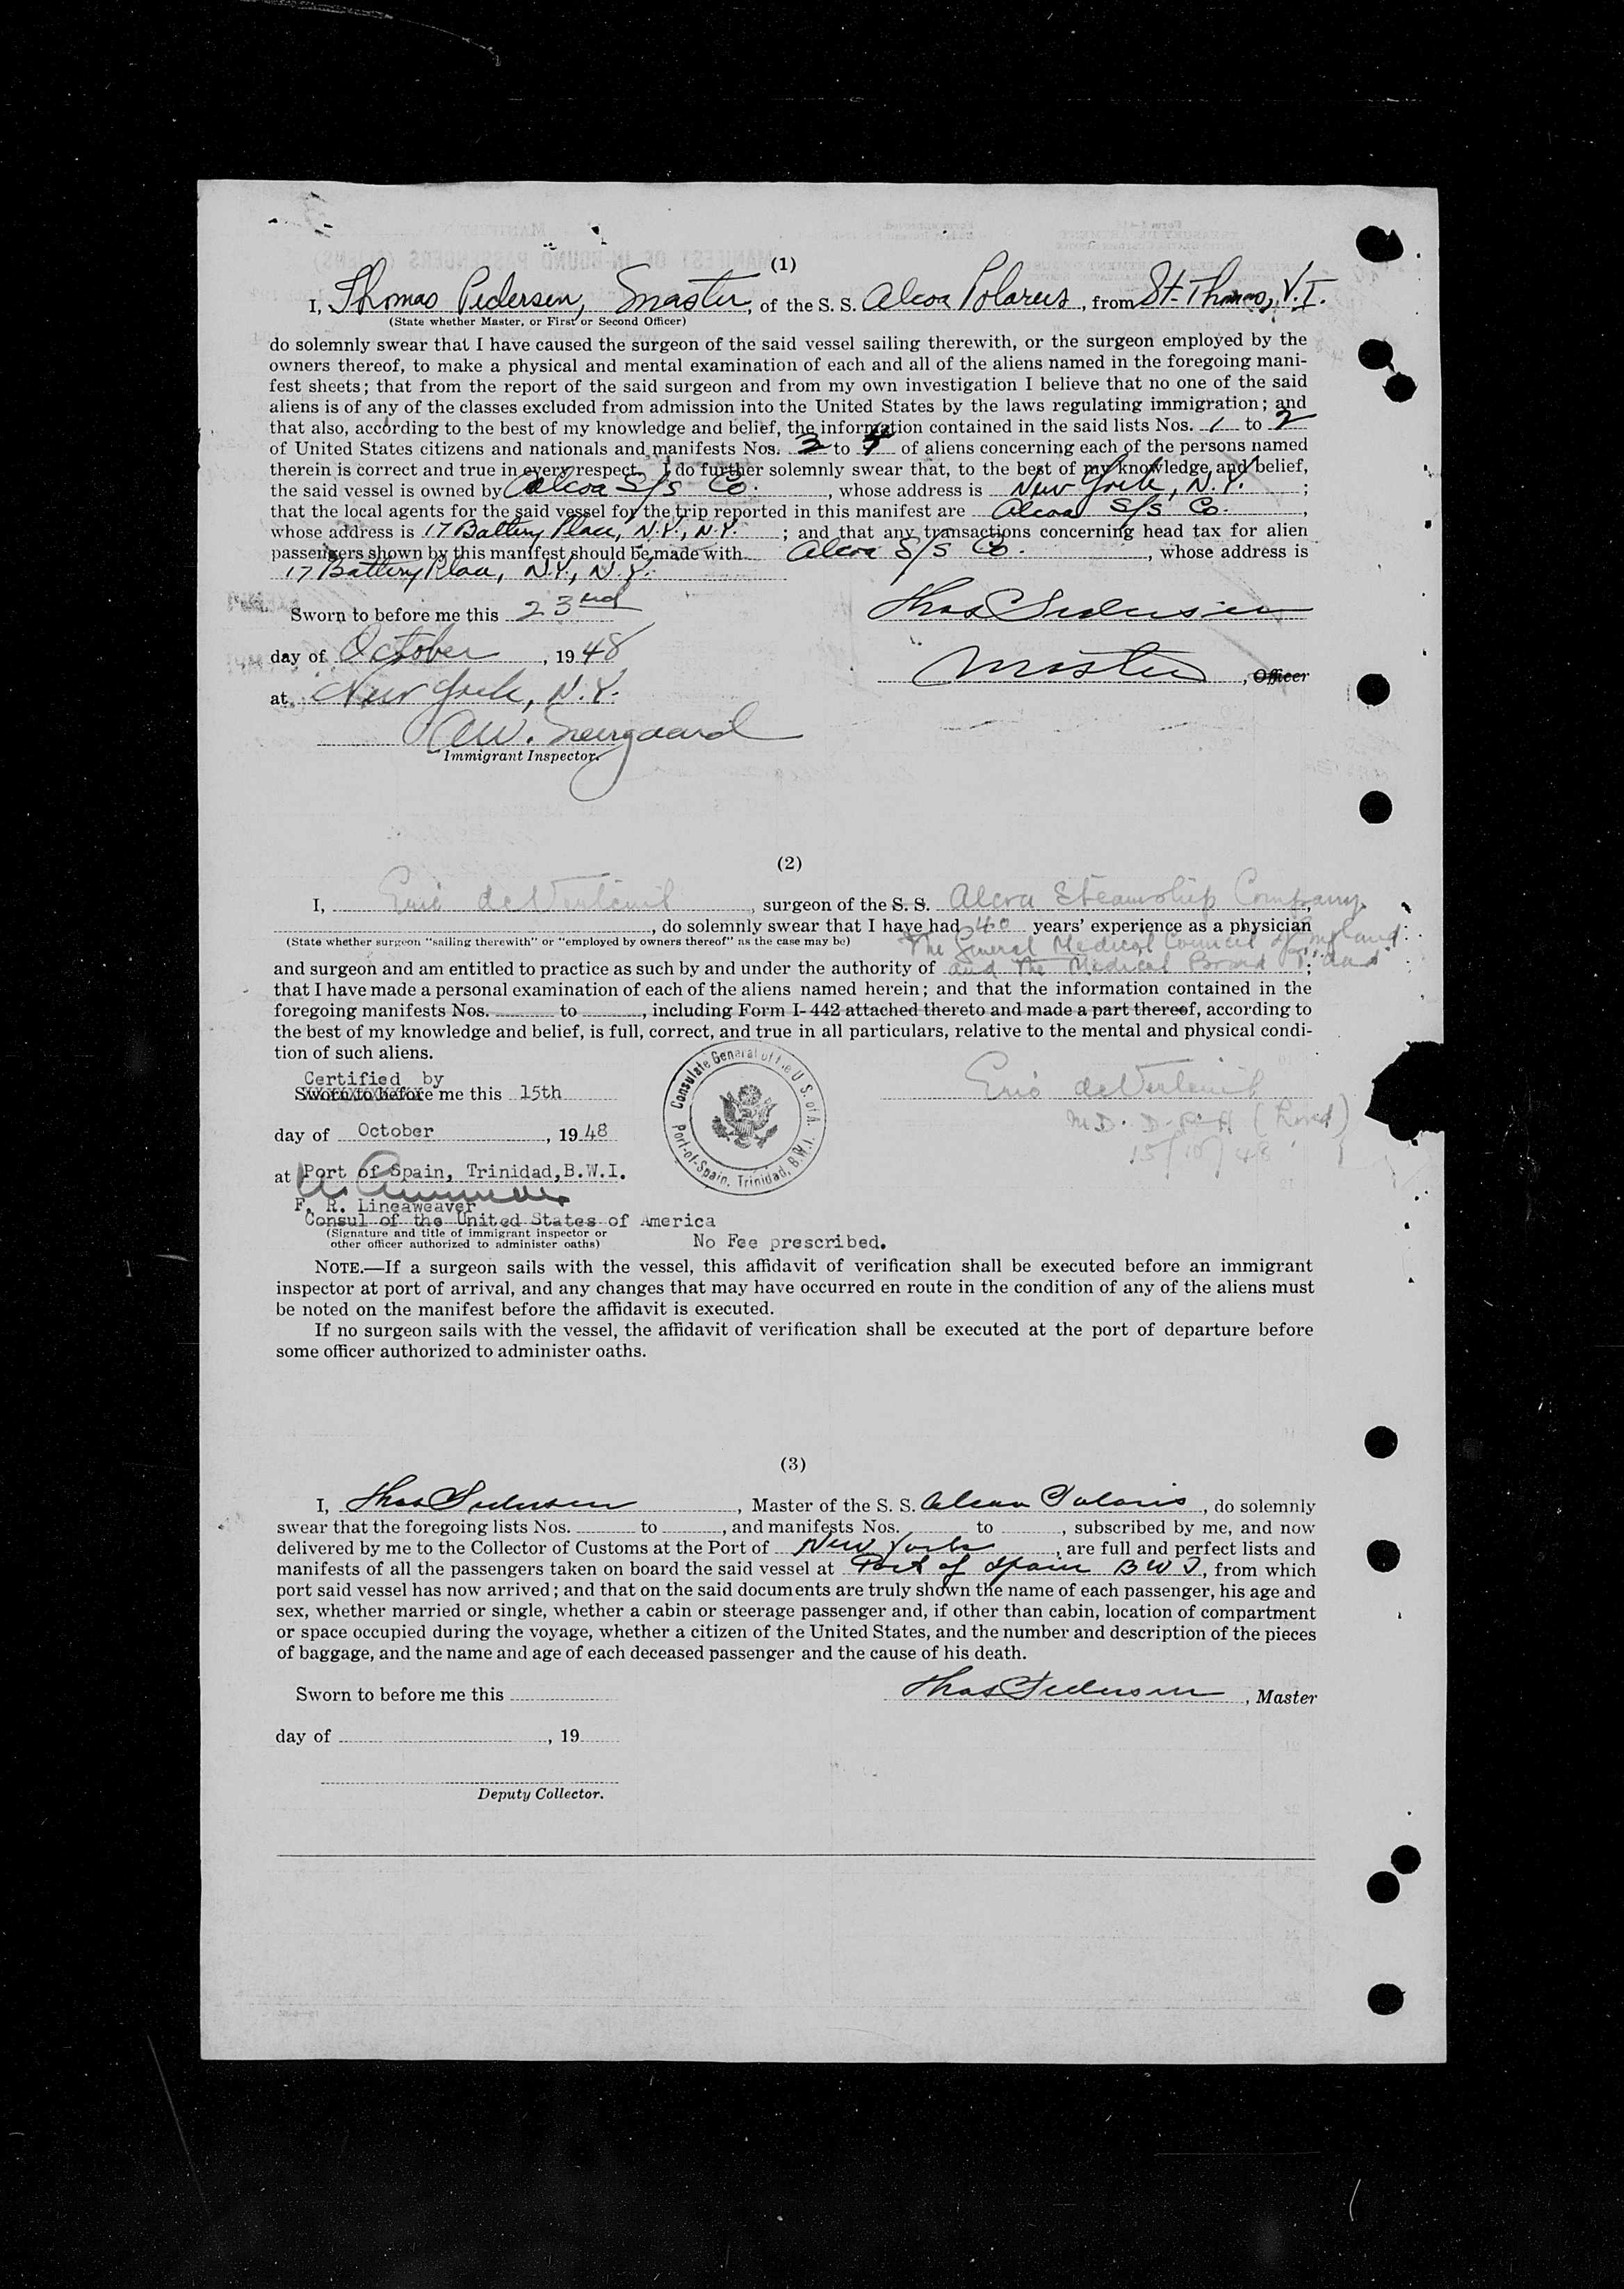 (1)
I, Thomas Pedersen, Master, of the S. S. Alcoa Polaris, from St. Thomas, V.I.
(State whether Master, or First or Second Officer)
do solemnly swear that I have caused the surgeon of the said vessel sailing therewith, or the surgeon employed by the
owners thereof, to make a physical and mental examination of each and all of the aliens named in the foregoing mani-
fest sheets; that from the report of the said surgeon and from my own investigation I believe that no one of the said
aliens is of any of the classes excluded from admission into the United States by the laws regulating immigration; and
that also, according to the best of my knowledge and belief, the information contained in the said lists Nos. 1 to 2
of United States citizens and nationals and manifests Nos. 3 to of aliens concerning each of the persons named
therein is correct and true in every respect. I do further solemnly swear that, to the best of my knowledge and belief,
the said vessel is owned by Alcoa S/S Co., whose address is New York, N.Y.;
that the local agents for the said vessel for the trip reported in this manifest are Alcoa S/S Co.,
whose address is 17 Battery Place, N.Y., N.Y.; and that any transactions concerning head tax for alien
passengers shown by this manifest should be made with Alcoa S/S Co., whose address is
17 Battery Place, N.Y., N.Y.
Sworn to before me this 23rd
Thos Pedersen
day of October, 1948
Master, Officer
at New York, N.Y.
A.W.
Immigrant Inspector.
(2)
I, Eric deVerteuil, surgeon of the S. S. Alcoa Steamship Company
, do solemnly swear that I have had 40 years' experience as a physician
(State whether surgeon "sailing therewith" or "employed by owners thereof" as the case may be)
The General Medical Council of England
and surgeon and am entitled to practice as such by and under the authority of and The Medical Board T'dad;
that I have made a personal examination of each of the aliens named herein; and that the information contained in the
foregoing manifests Nos. to , including Form I-442 attached thereto and made a part thereof, according to
the best of my knowledge and belief, is full, correct, and true in all particulars, relative to the mental and physical condi-
tion of such aliens.
Consulate General of the U. S. of A.
Port-of-Spain, Trinidad, B.W.I.
Certified by
Sworn to before me this 15th
Eric deVerteuil
M.D. D.P.H (Lond)
day of October, 1948
15/10/48
at Port of Spain, Trinidad, B.W.I.
F. R. Lineaweaver
Consul of the United States of America
(Signature and title of immigrant inspector or
other officer authorized to administer oaths)
No Fee prescribed.
NOTE.—If a surgeon sails with the vessel, this affidavit of verification shall be executed before an immigrant
inspector at port of arrival, and any changes that may have occurred en route in the condition of any of the aliens must
be noted on the manifest before the affidavit is executed.
If no surgeon sails with the vessel, the affidavit of verification shall be executed at the port of departure before
some officer authorized to administer oaths.
(3)
I, Thos Pedersen, Master of the S. S. Alcoa Polaris, do solemnly
swear that the foregoing lists Nos. to , and manifests Nos. to , subscribed by me, and now
delivered by me to the Collector of Customs at the Port of New York, are full and perfect lists and
manifests of all the passengers taken on board the said vessel at Port of Spain B W I, from which
port said vessel has now arrived; and that on the said documents are truly shown the name of each passenger, his age and
sex, whether married or single, whether a cabin or steerage passenger and, if other than cabin, location of compartment
or space occupied during the voyage, whether a citizen of the United States, and the number and description of the pieces
of baggage, and the name and age of each deceased passenger and the cause of his death.
Sworn to before me this
Thos Pedersen, Master
day of , 19
Deputy Collector.